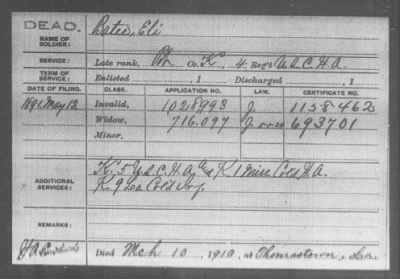 DEAD.
NAME OF SOLDIER: Bates, Eli
SERVICE: Late rank, Pvt Co. K, 4 Reg't U.S.C.H.A.
TERM OF SERVICE: Enlisted , 1 Discharged , 1
DATE OF FILING. CLASS. APPLICATION NO. LAW. CERTIFICATE NO.
1891 May 12 Invalid, 1028993 J. 1158462
Widow, 716.097 693701
Minor,
ADDITIONAL SERVICES: K. 5 U.S.C.H.A. K 1 Miss Cold H.A.
K. 9 La Cold Inf.
REMARKS:
Died Mch 10, 1910, at Thomastown, La.